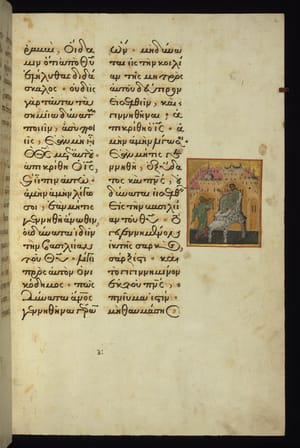 ραββὶ, οἴδα
μεν ὅτι ἀπὸ θυ
ἐλήλυθας διδά
σκαλος· οὐδεὶς
γὰρ ταῦτα τὰ
σημεῖα δύναται
ποιεῖν, ἃ σὺ ποι
εῖς· ἐὰν μὴ ἦ ὁ
θς μετ' αὐτοῦ·
ἀπεκρίθη ὁ ις,
καὶ εἶπεν αὐτῶ·
ἀμὴν ἀμὴν λέγω
σοι· ἐὰν μή τις
γεννηθῆ ἄνωθεν,
οὐ δύναται ἰδεῖν
τὴν βασιλείαν
τοῦ θυ· λέγει
πρὸς αὐτὸν ὁ νι
κόδημος· πῶς
δύναται ἄνος
γεννηθῆναι γέρων
ὤν· μὴ δύνα
ται εἰς τὴν κοιλί
αν τῆς μητρὸς
αὐτοῦ δεύτερον
εἰσελθεῖν, καὶ
γεννηθῆναι· ἀ
πεκρίθη ὁ ις· ἀ
μὴν ἀμὴν λέγω σοι·
ἐὰν μή τις γεν
νηθῆ ἐξ ὕδα
τος καὶ πνς, οὐ
δύναται εἰσελθεῖν
εἰς τὴν βασιλεί
αν τοῦ θυ· τὸ
γεγεννημένον
ἐκ τῆς σαρκὸς,
σάρξ ἐστι· καὶ
τὸ γεγεννημένον
ἐκ τοῦ πνς·
πνευμα ἐστιν·
μὴ θαυμάσης ὅ